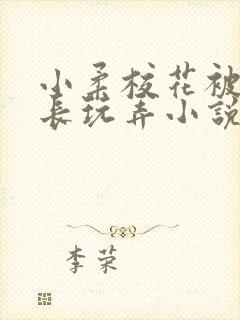 小柔校花被
长玩弄小説
李荣